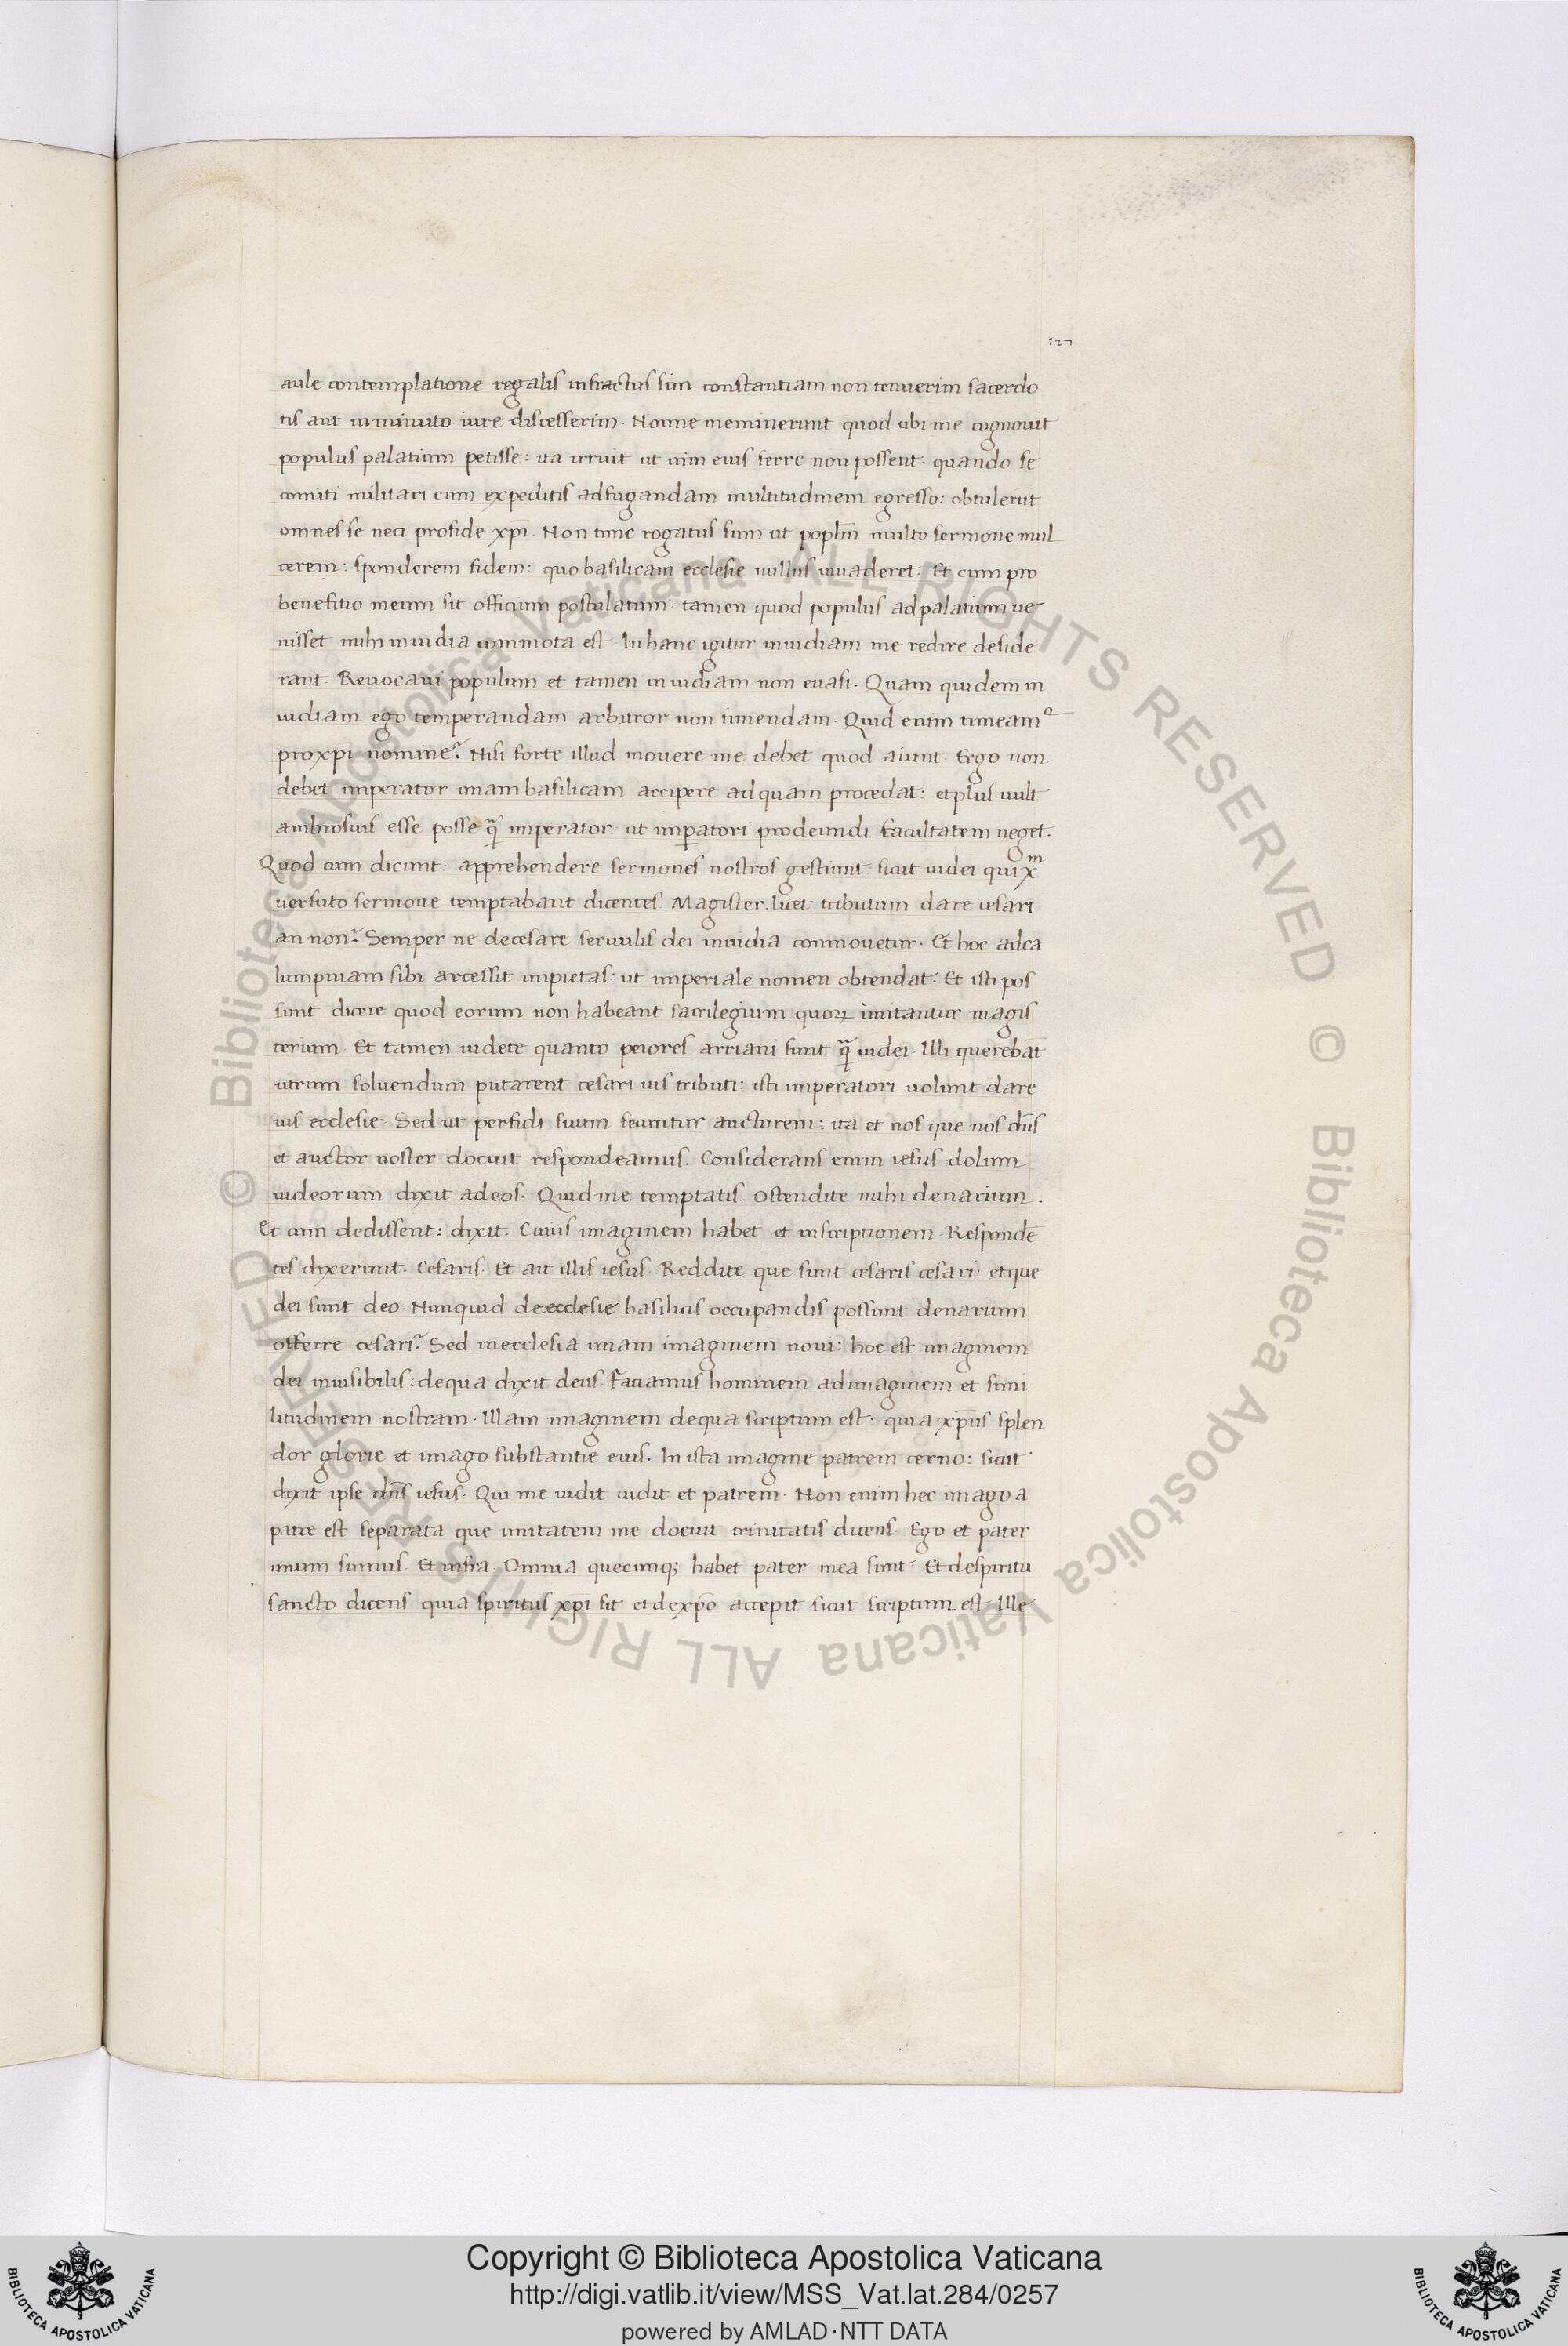 127
aule contemplatione regalis infractus sim constantiam non tenuerim sacerdo
tis aut inminuto iure discesserim. Nonne meminerunt quod ubi me cognouit
populus palatium petisse: ita irruit ut uim eius ferre non possent. quando se
comiti militari cum expeditis adfugandam multitudinem egresso: obtulerūt
omnes se neci profide xp̄i. Non tunc rogatus sum ut popl̄m multo sermone mul
cerem: sponderem fidem: quo basilicam ecclesie nullus inuaderet. Et cum pro
benefitio meum sit officium postulatum. tamen quod populus adpalatium ue
nisset mihi inuidia commota est. Inhanc igitur inuidiam me redire deside
rant. Reuocaui populum et tamen inuidiam non euasi. Quam quidem in
uidiam ego temperandam arbitror non timendam. Quid enim timeam
proxp̄i nomine? Nisi forte illud mouere me debet quod aiunt. Ergo non
debet imperator unam basilicam accipere adquam procedat: etplus uult
ambrosius esse posse q̄ imperator. ut imꝑatori prodeundi facultatem neget.
Quod cum dicunt: apprehendere sermones nostros gestiunt: sicut iudei qui xᵐ
uersuto sermone temptabant dicentes. Magister. licet tributum dare cesari
an non? Semper ne decesare seruulis dei inuidia conmouetur. Et hoc adca
lumpniam sibi arcessit impietas: ut imperiale nomen obtendat. Et isti pos
sunt dicere quod eorum non habeant sacrilegium quoꝝ imitantur magis
terium. Et tamen uidete quanto peiores arriani sunt q̄ iudei. Illi querebāt
utrum soluendum putarent cesari ius tributi: isti imperatori uolunt dare
ius ecclesie. Sed ut perfidi suum secuntur auctorem: ita et nos que nos dn̄s
et auctor noster docuit respondeamus. Considerans enim iesus dolum
iudeorum dixit adeos. Quid me temptatis. ostendite mihi denarium.
Et cum dedissent: dixit. Cuius imaginem habet et inscriptionem. Respondē
tes dixerunt. Cesaris. Et ait illis iesus. Reddite que sunt cesaris cesari: etque
dei sunt deo. Nunquid deecclesie basilicis occupandis possunt denarium
offerre cesari? Sed inecclesia unam imaginem noui: hoc est imaginem
dei inuisibilis: dequa dixit deus. Faciamus hominem adimaginem et simi
litudinem nostram. Illam imaginem dequa scriptum est: quia xp̄us splen
dor glorie et imago substantie eius. In ista imagine patrem cerno: sicut
dixit ipse dn̄s iesus. Qui me uidit uidit et patrem. Non enim hec imago a
patre est separata que unitatem me docuit trinitatis dicens. Ego et pater
unum sumus. Et infra. Omnia quecunqꝫ habet pater mea sunt. Et despiritu
sancto dicens quia spiritus xp̄i sit etdexp̄o accepit sicut scriptum est. Ille
© Biblioteca Apostolica Vaticana ALL RIGHTS RESERVED
© Biblioteca Apostolica Vaticana ALL RIGHTS RESERVED
Copyright © Biblioteca Apostolica Vaticana
http://digi.vatlib.it/view/MSS_Vat.lat.284/0257
powered by AMLAD·NTT DATA
BIBLIOTECA APOSTOLICA VATICANA
BIBLIOTECA APOSTOLICA VATICANA